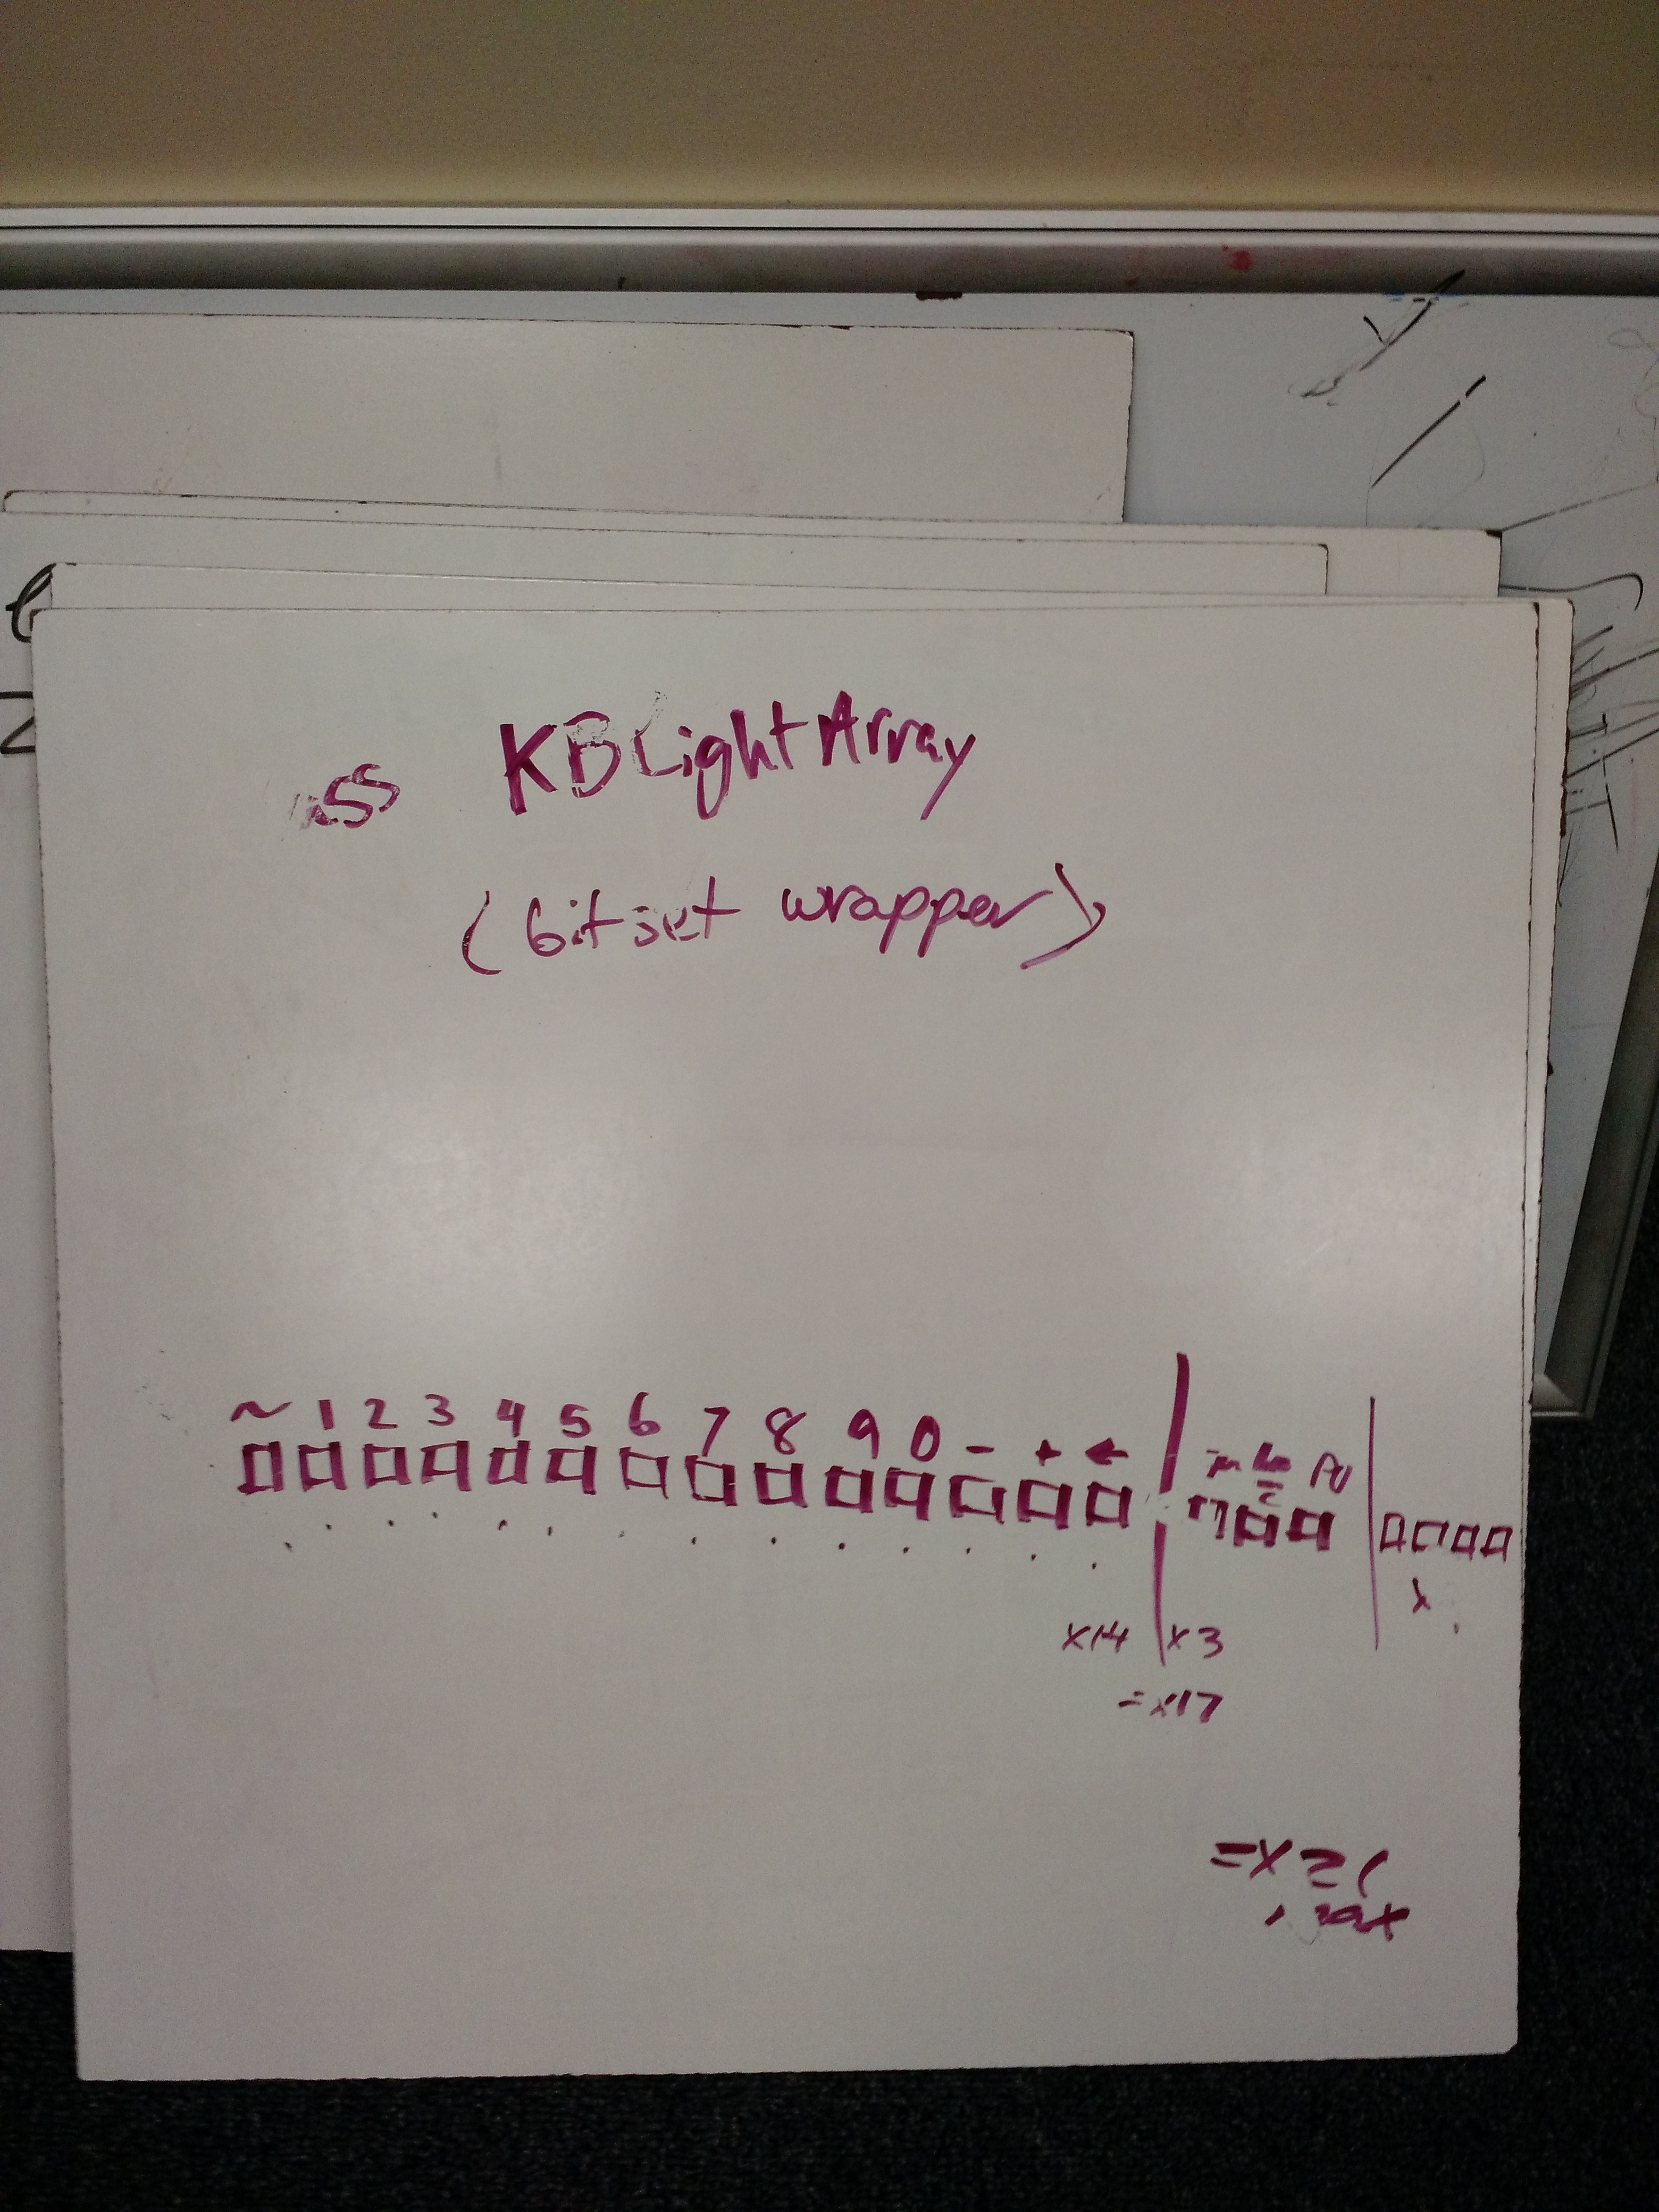 ss KBLightArray
(bitset wrapper)
~ 1 2 3 4 5 6 7 8 9 0 - + ←
x14 x3
x
=x17
=x21